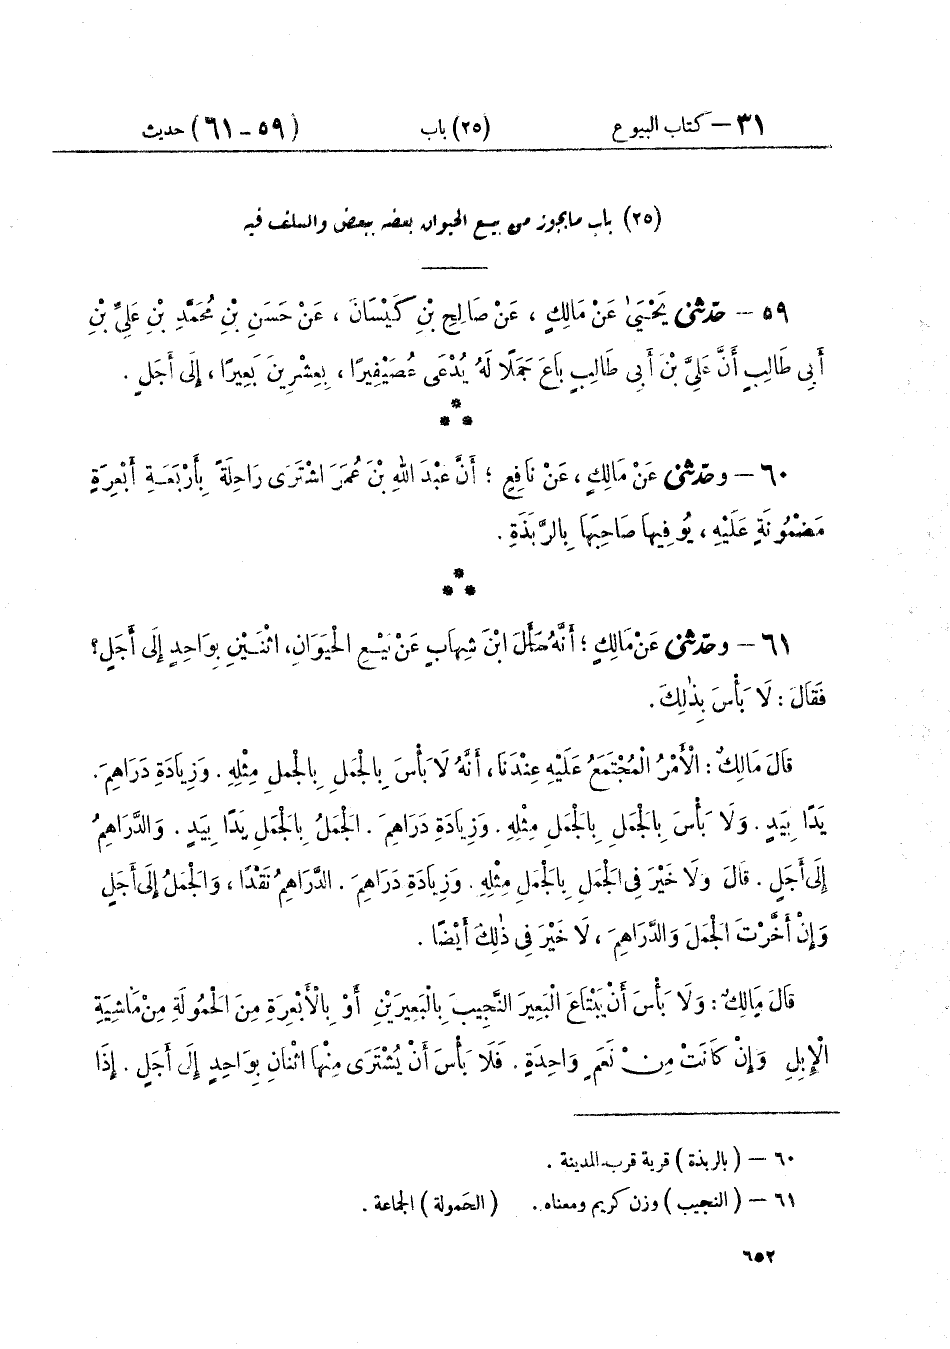 ٣١ – كتاب البيوع (٢٥) باب (٥٩ – ٦١) حديث
(٢٥) باب ما يجوز من بيع الحيوان بعضه ببعض والسلف فيه
٥٩ – حدّثنى يَحْيَىٰ عَنْ مَالِكٍ ، عَنْ صَالِحِ بْنِ كَيْسَانَ ، عَنْ حَسَنِ بْنِ مُحَمَّدِ بْنِ عَلِيِّ بْنِ
أَبِى طَالِبٍ أَنَّ عَلِيَّ بْنَ أَبِى طَالِبٍ بَاعَ جَمَلًا لَهُ يُدْعَى عُصَيْفِيرًا ، بِعِشْرِينَ بَعِيرًا ، إِلَى أَجَلٍ .
***
٦٠ – وحدّثنى عَنْ مَالِكٍ ، عَنْ نَافِعٍ ؛ أَنَّ عَبْدَ اللهِ بْنَ عُمَرَ اشْتَرَى رَاحِلَةً بِأَرْبَعَةِ أَبْعِرَةٍ
مَضْمُونَةٍ عَلَيْهِ ، يُوفِيهَا صَاحِبَهَا بِالرَّبَذَةِ .
***
٦١ – وحدّثنى عَنْ مَالِكٍ ؛ أَنَّهُ سَأَلَ ابْنَ شِهَابٍ عَنْ بَيْعِ الْحَيَوَانِ، اثْنَيْنِ بِوَاحِدٍ إِلَى أَجَلٍ؟
فَقَالَ : لَا بَأْسَ بِذٰلِكَ .
قَالَ مَالِكٌ : الْأَمْرُ الْمُجْتَمَعُ عَلَيْهِ عِنْدَنَا ، أَنَّهُ لَا بَأْسَ بِالْجَمَلِ بِالْجَمَلِ مِثْلِهِ . وَزِيَادَةِ دَرَاهِمَ .
يَدًا بِيَدٍ . وَلَا بَأْسَ بِالْجَمَلِ بِالْجَمَلِ مِثْلِهِ . وَزِيَادَةِ دَرَاهِمَ . الْجَمَلُ بِالْجَمَلِ يَدًا بِيَدٍ . وَالدَّرَاهِمُ
إِلَى أَجَلٍ . قَالَ وَلَا خَيْرَ فِى الْجَمَلِ بِالْجَمَلِ مِثْلِهِ . وَزِيَادَةِ دَرَاهِمَ . الدَّرَاهِمُ نَقْدًا ، وَالْجَمَلُ إِلَى أَجَلٍ
وَإِنْ أَخَّرْتَ الْجَمَلَ وَالدَّرَاهِمَ ، لَا خَيْرَ فِى ذٰلِكَ أَيْضًا .
قَالَ مَالِكٌ : وَلَا بَأْسَ أَنْ يَبْتَاعَ الْبَعِيرَ النَّجِيبَ بِالْبَعِيرَيْنِ أَوْ بِالْأَبْعِرَةِ مِنَ الْحَمُولَةِ مِنْ مَاشِيَةِ
الْإِبِلِ وَإِنْ كَانَتْ مِنْ نَعَمٍ وَاحِدَةٍ . فَلَا بَأْسَ أَنْ يُشْتَرَى مِنْهَا اثْنَانِ بِوَاحِدٍ إِلَى أَجَلٍ . إِذَا
٦٠ – ( بالربذة ) قرية قرب المدينة .
٦١ – ( النجيب ) وزن كريم ومعناه . ( الحَمولة ) الجماعة .
٦٥٢